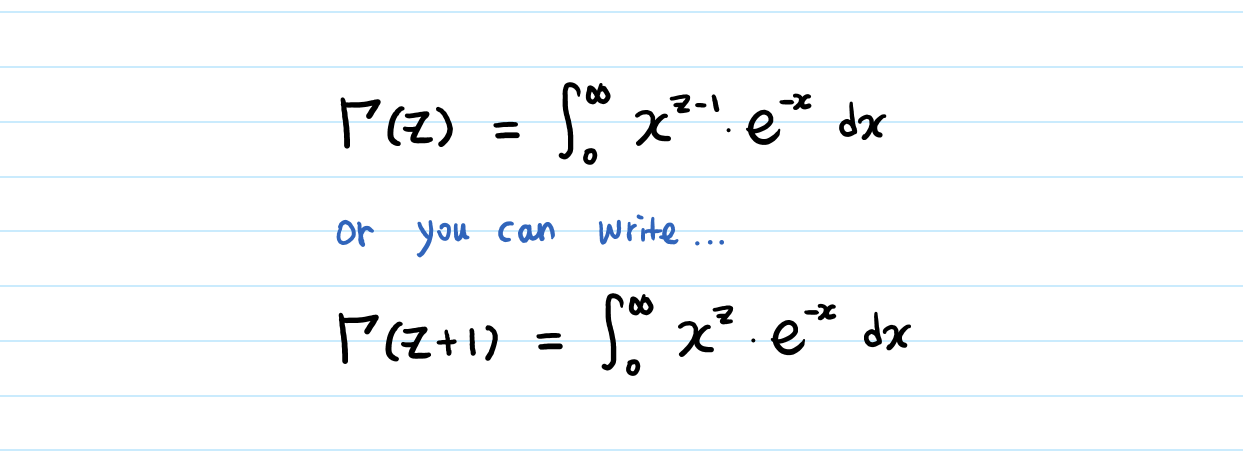 Γ(z) = ∫₀^∞ x^{z-1} · e^{-x} dx
or you can write...
Γ(z+1) = ∫₀^∞ x^z · e^{-x} dx